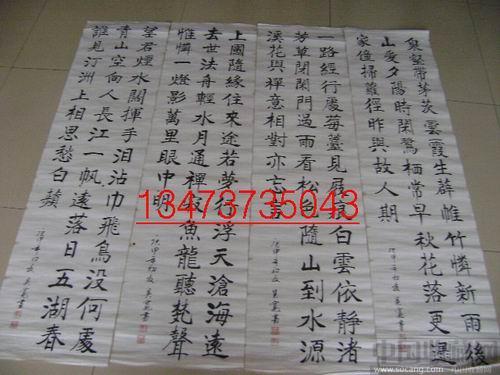 泉壑帶茅茨雲霞生薜帷竹憐新雨後
山愛夕陽時閑鷺栖常早秋花落更遲
家僮掃蘿徑昨與故人期
一路經行處莓苔見屐痕白雲依靜渚
芳草閉閑門過雨看松色隨山到水源
溪花與禪意相對亦忘言
上國隨緣住來途若夢行浮天滄海遠
去世法舟輕水月通禪寂魚龍聽梵聲
惟憐一燈影萬里眼中明
望君煙水闊揮手泪沾巾飛鳥沒何處
青山空向人長江一帆遠落日五湖春
誰見汀洲上相思愁白蘋
13473735043
www.sucang.com